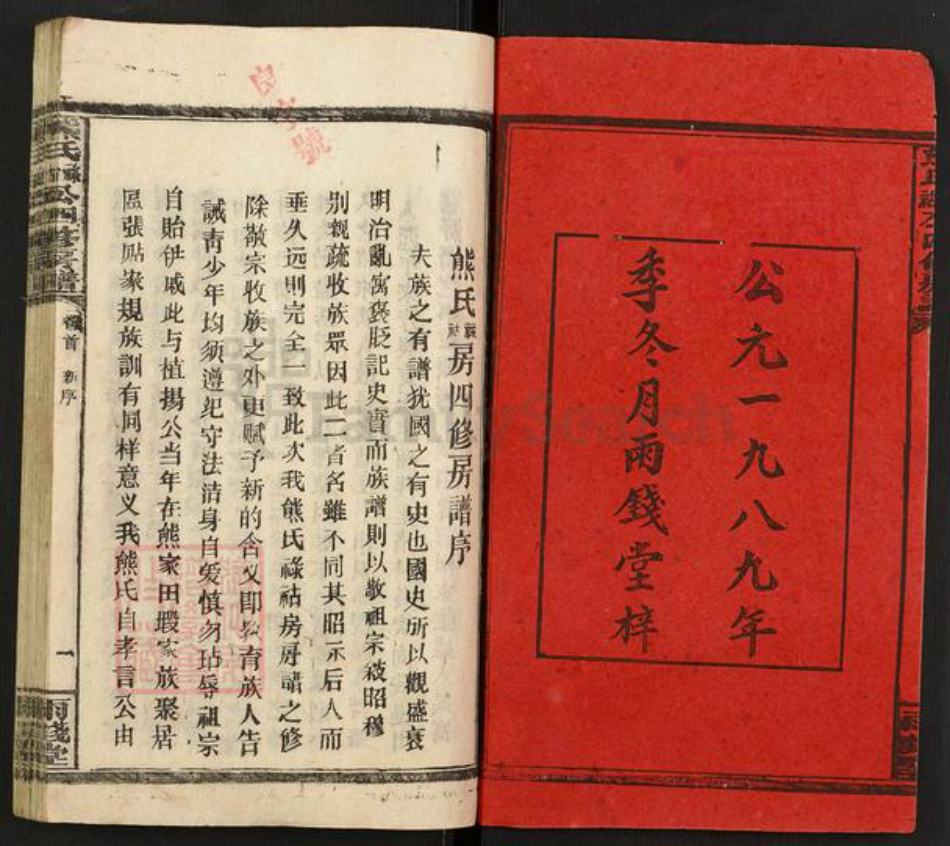 公元一九八九年
季冬月雨錢堂梓
熊氏祿祜房四修房譜序
夫族之有譜犹國之有史也國史所以觀盛衰
明治亂寓褒貶記史實而族譜則以敬祖宗敍昭穆
别親疏收族眾因此二者名雖不同其昭示后人而
垂久远則完全一致此次我熊氏祿祜房房譜之修
除敬宗收族之外更赋予新的含义即教育族人告
誡青少年均须遵纪守法洁身自爱慎勿玷辱祖宗
自貽伊戚此与植揚公当年在熊家田塅家族聚居
區張贴家規族訓有同样意义我熊氏自孝言公由
卷首 新序
一
雨錢堂
FamilySearch